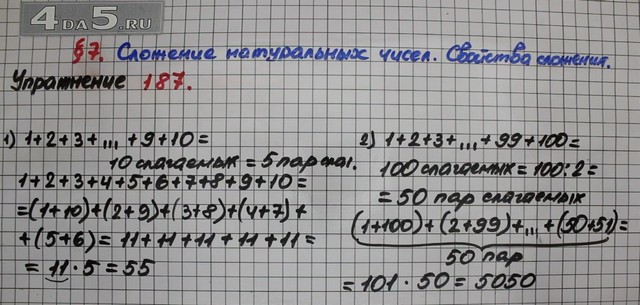 4DA5.RU
§7. Сложение натуральных чисел. Свойства сложения.
Упражнение 187.
1) 1+2+3+,,,+9+10=
10 слагаемых = 5 пар слаг.
1+2+3+4+5+6+7+8+9+10=
=(1+10)+(2+9)+(3+8)+(4+7)+
+(5+6)=11+11+11+11+11=
=11·5=55
2) 1+2+3+,,,+99+100=
100 слагаемых=100:2=
=50 пар слагаемых
(1+100)+(2+99)+,,+(50+51)=
50 пар
=101·50=5050